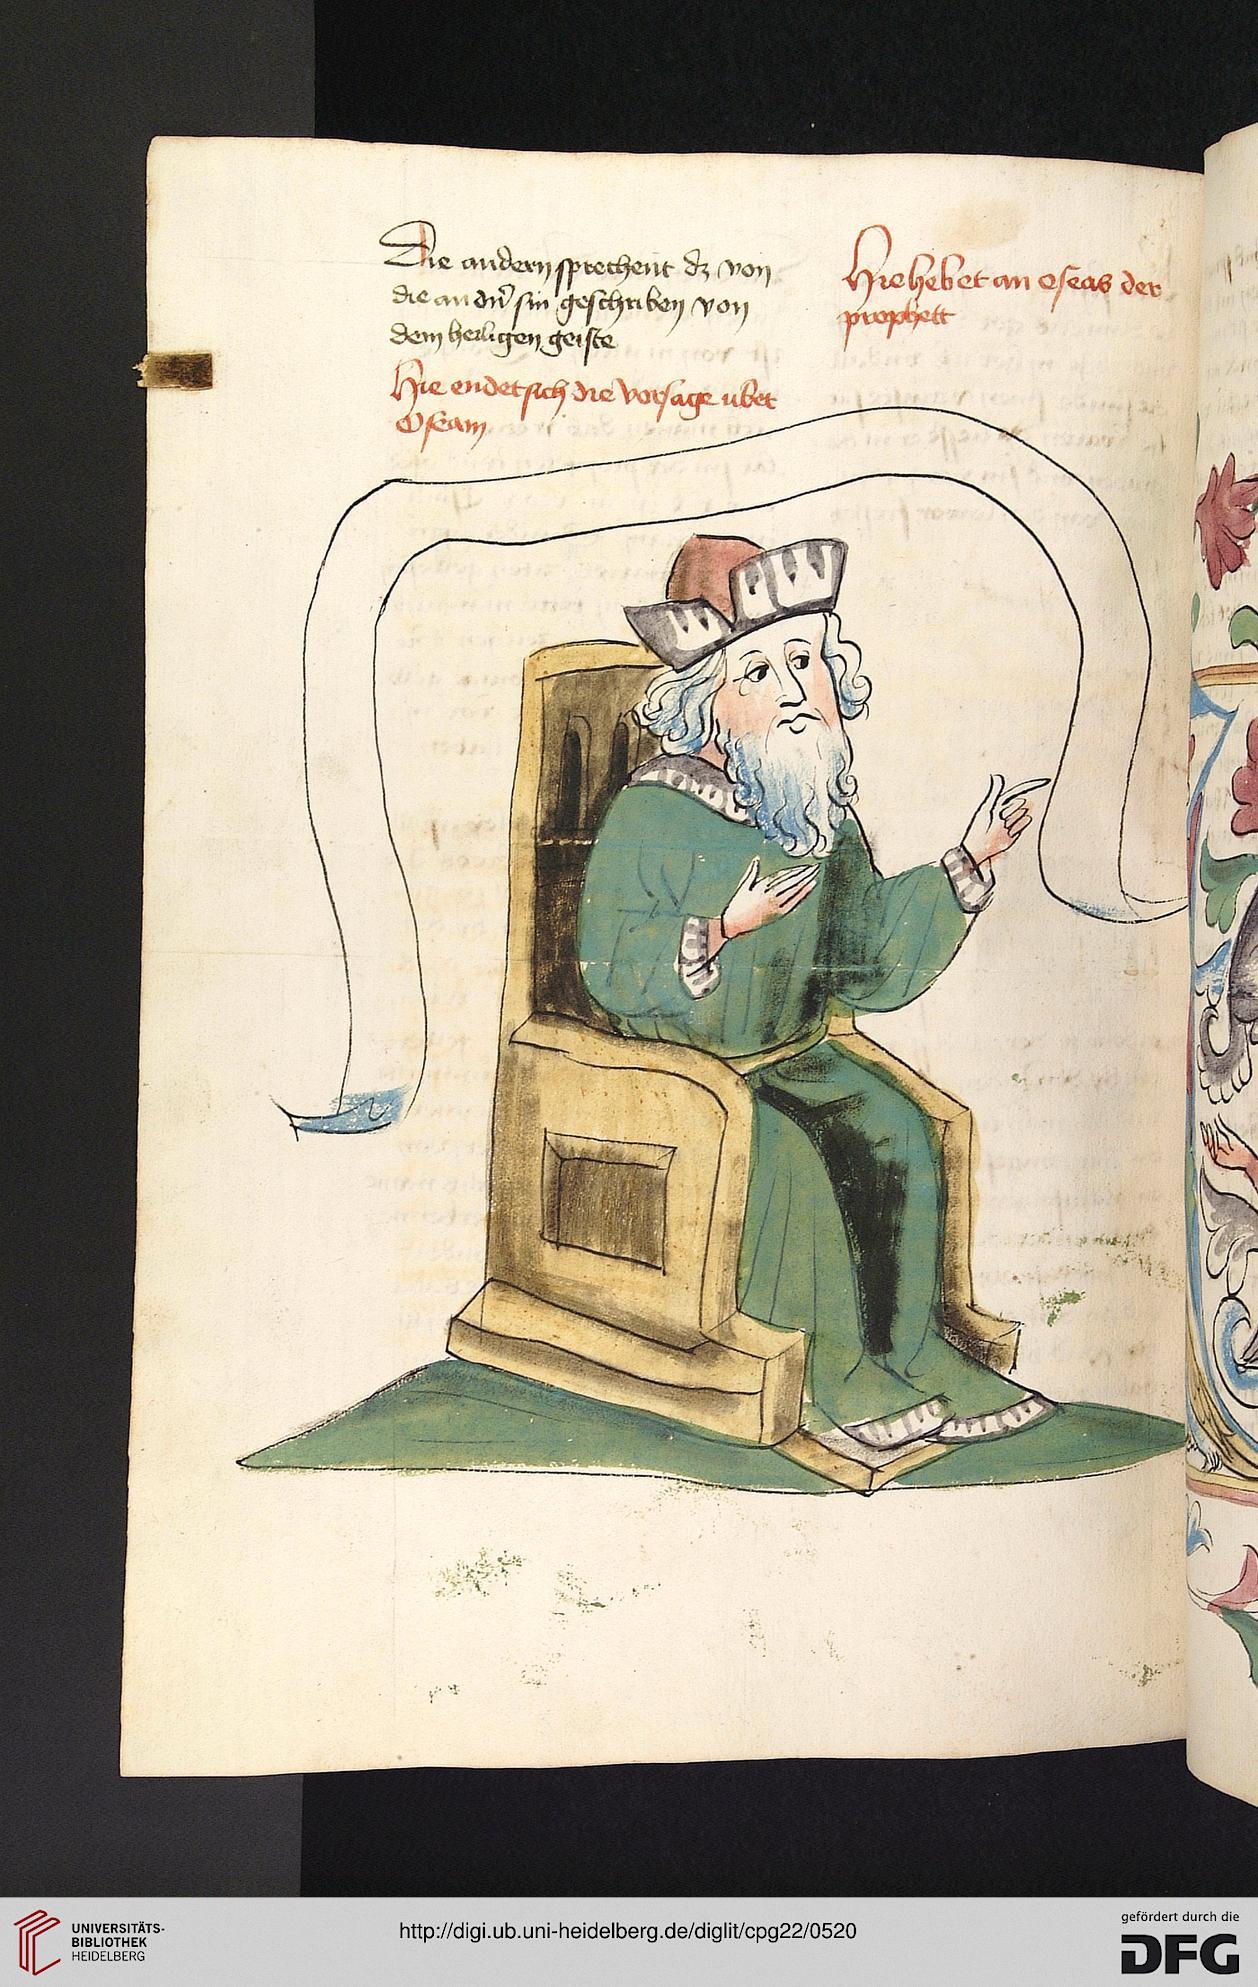 Die andern sprechent dz von
die andn̄ sin geschriben von
dem heiligen geiste
Hie endet sich die vorsage uber
Oseam
Hie hebet an oseas der
prophett
UNIVERSITÄTS-
BIBLIOTHEK
HEIDELBERG
http://digi.ub.uni-heidelberg.de/diglit/cpg22/0520
gefördert durch die
DFG